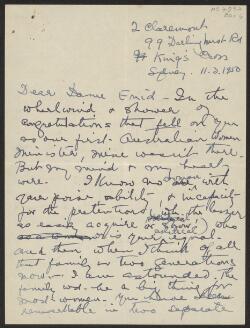 2 Claremont
99 Darlinghurst Rd
Kings Cross
Sydney. 11-2.1950
Dear Dame Enid - In the
whirlwind & shower of
congratulations that fell on you
as our first Australian Woman
Minister, mine wasn't there.
But my mind & my heart
were. I know no woman with
your poise ability & incapacity
for the pretentious
so easily acquire
is quite
and then when I think of all
that family in two generations
now - I am astounded. The
family wd. be a big thing for
most women. You have been
remarkable in two separate